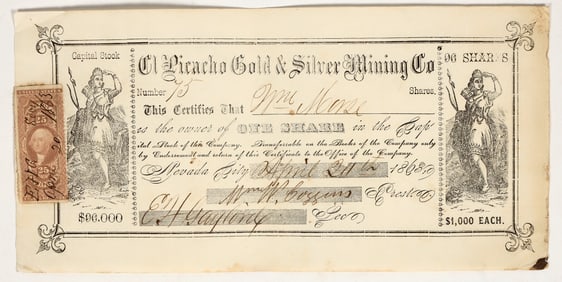 Capital Stock
El Picacho Gold & Silver Mining Co
96 SHARES
Number 15 Shares.
This Certifies That Wm Morse
is the owner of ONE SHARE in the Cap
ital Stock of this Company. Transferable on the Books of the Company only
by Endorsement and return of this Certificate to the Office of the Company.
Nevada City April 24th 1863
Prest
Secy
$96.000
$1,000 EACH.
25